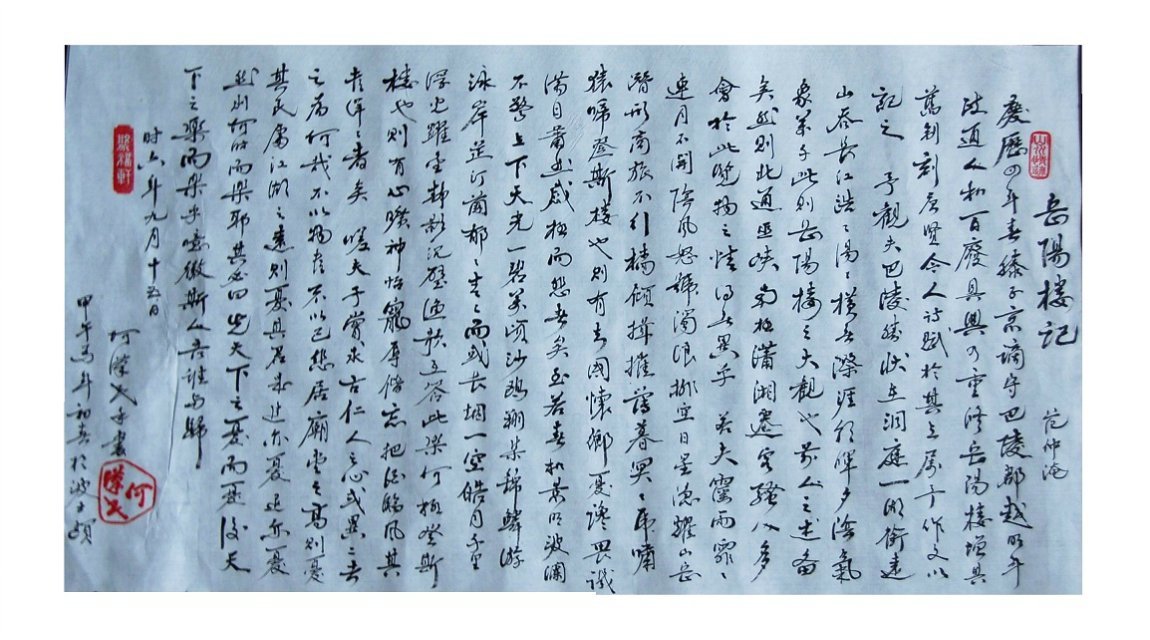 岳陽樓記 范仲淹
慶歷四年春滕子京謫守巴陵郡越明年
政通人和百廢具興乃重修岳陽樓增其
舊制刻唐賢今人詩賦於其上屬予作文以
記之 予觀夫巴陵勝狀在洞庭一湖銜遠
山吞長江浩浩湯湯橫無際涯朝暉夕陰氣
象萬千此則岳陽樓之大觀也前人之述備
矣然則北通巫峽南極瀟湘遷客騷人多
會於此覽物之情得無異乎 若夫霪雨霏霏
連月不開陰風怒號濁浪排空日星隱耀山岳
潛形商旅不行檣傾楫摧薄暮冥冥虎嘯
猿啼登斯樓也則有去國懷鄉憂讒畏譏
滿目蕭然感極而悲者矣至若春和景明波瀾
不驚上下天光一碧萬頃沙鷗翔集錦鱗游
泳岸芷汀蘭郁郁青青而或長煙一空皓月千里
浮光躍金靜影沉璧漁歌互答此樂何極登斯
樓也則有心曠神怡寵辱偕忘把酒臨風其
喜洋洋者矣 嗟夫予嘗求古仁人之心或異二者
之為何哉不以物喜不以己悲居廟堂之高則憂
其民處江湖之遠則憂其君是進亦憂退亦憂
然則何時而樂耶其必曰先天下之憂而憂後天
下之樂而樂乎噫微斯人吾誰與歸
時六年九月十五日
何榮書
甲午馬年初春於
何榮